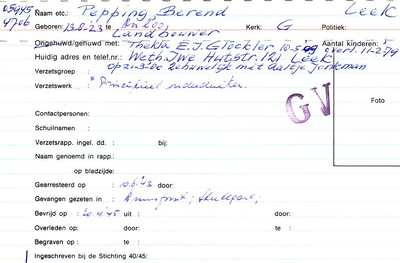 05945 Naam etc.: Pepping Berend Leek
4706 Geboren: 13.8.23 te Kerk: G Politiek:
Landbouwer
Ongehuwd/gehuwd met: Thekla E.J. Glöckler 10-5- overl. 11-2-79 Aantal kinderen:
Huidig adres en telef.nr.: Weth. JWe Hutstr. 121 Leek
Verzetsgroep : op 21-3-80 gehuwelijk met Aaltje Jonkman
Verzetswerk : * Principieel onderduiker.
GV
Foto
Contactpersonen:
Schuilnaam :
Verzetsrapp. ingel. dd. : bij:
Naam genoemd in rapp.:
op bladzijde:
Gearresteerd op : 10.6.'43 door:
Gevangen gezeten in : Amersfoort;
Bevrijd op : 20.4.'45 uit : door:
Overleden op: door: te :
Begraven op : te :
Ingeschreven bij de Stichting 40/45: